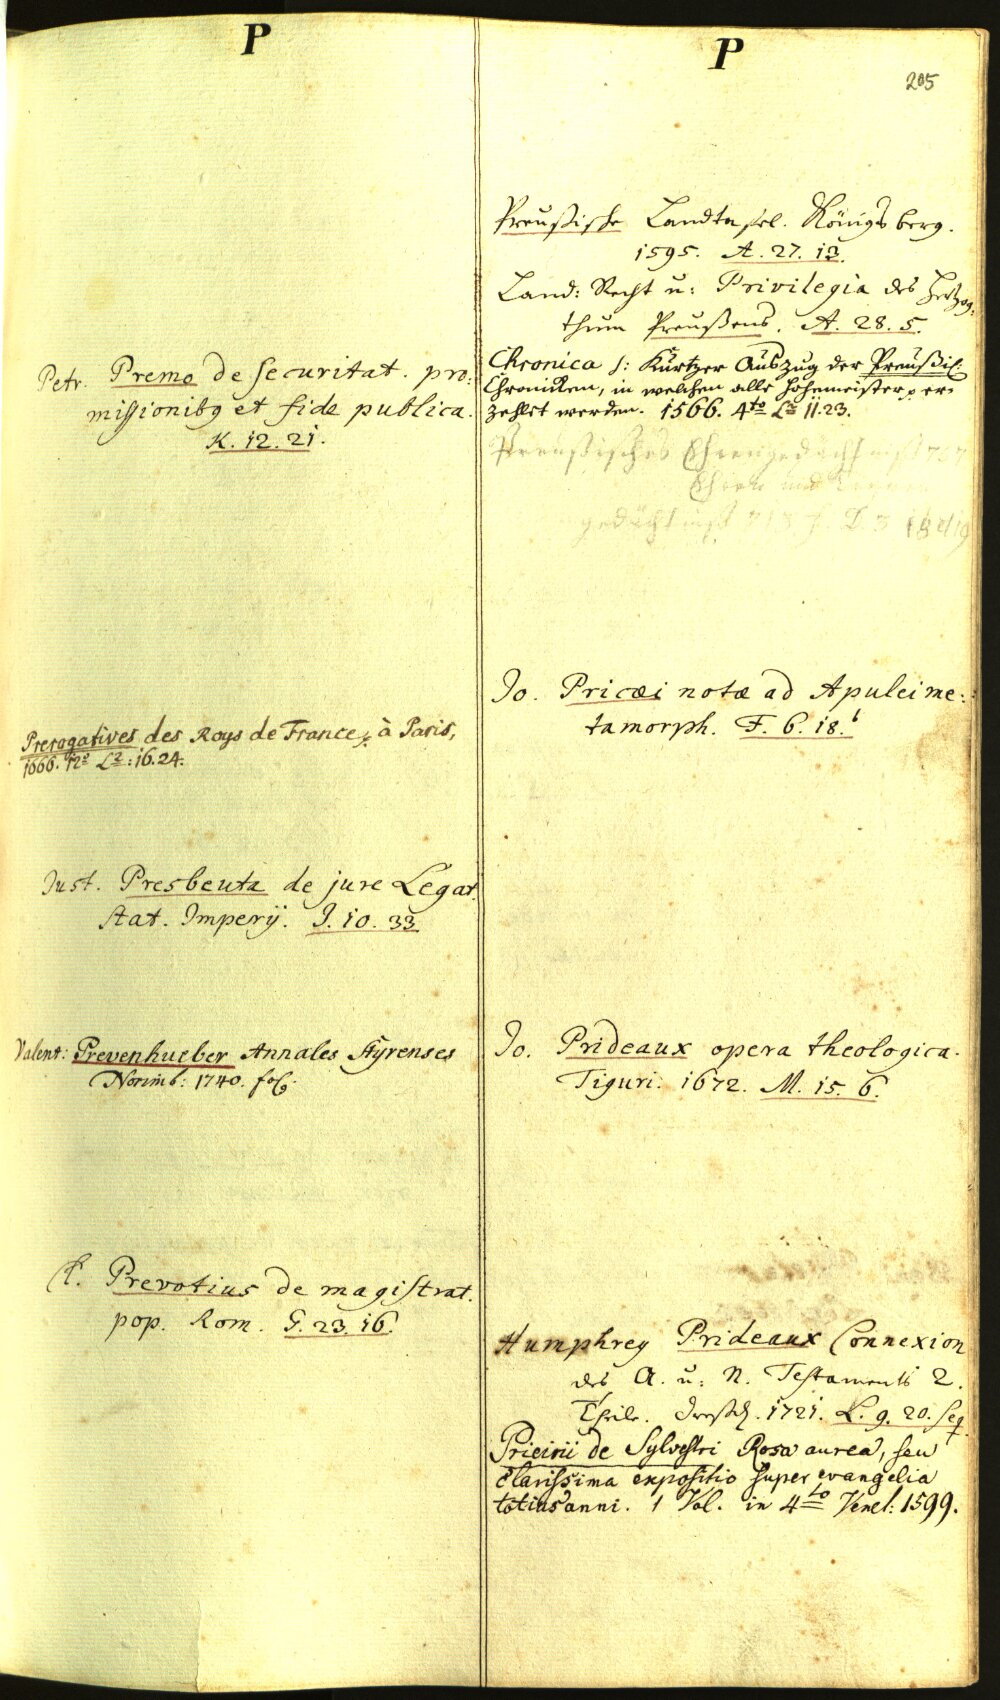 P
Petr. Premo de securitat. pro:
missionibq et fide publica.
K. 12. 21.
Prerogatives des Roys de France, à Paris,
1666. 12º L2: 16.24.
Just. Presbeuta de jure Legat.
stat. Imperÿ. J. 10. 33
Valent: Prevenhueber Annales Styrenses
Norimb: 1740. fol.
Cl. Prevotius de magistrat.
pop. Rom. G. 23. 16.
P
205
Preußische Landtafel. Königsberg.
1595. A. 27. 13.
Land: Recht u: Privilegia des Hertzog:
thum Preußens. A. 28. 5.
Chronica s: Kurtzer Auszug der Preüßis:
Chronicken, in welchen alle Hohemeister er,
zehlet werden. 1566. 4to L2 11.23.
Preußisches Ehrengedächtniß
Ehren und
gedächtniß 713 f. D. 3
Jo. Pricæi notæ ad Apulei me:
tamorph. F. 6. 18.b
Jo. Prideaux opera theologica.
Tiguri. 1672. M. 15. 6.
Humphrey Prideaux Connexion
des A. u: N. Testaments 2.
Theile. Dreßd. 1721. L. 9. 20. seq
Prieirii de Sylvestri Rosa aurea, seu
Clarissima expositio super evangelia
totius anni. 1 Vol. in 4to Venet: 1599.